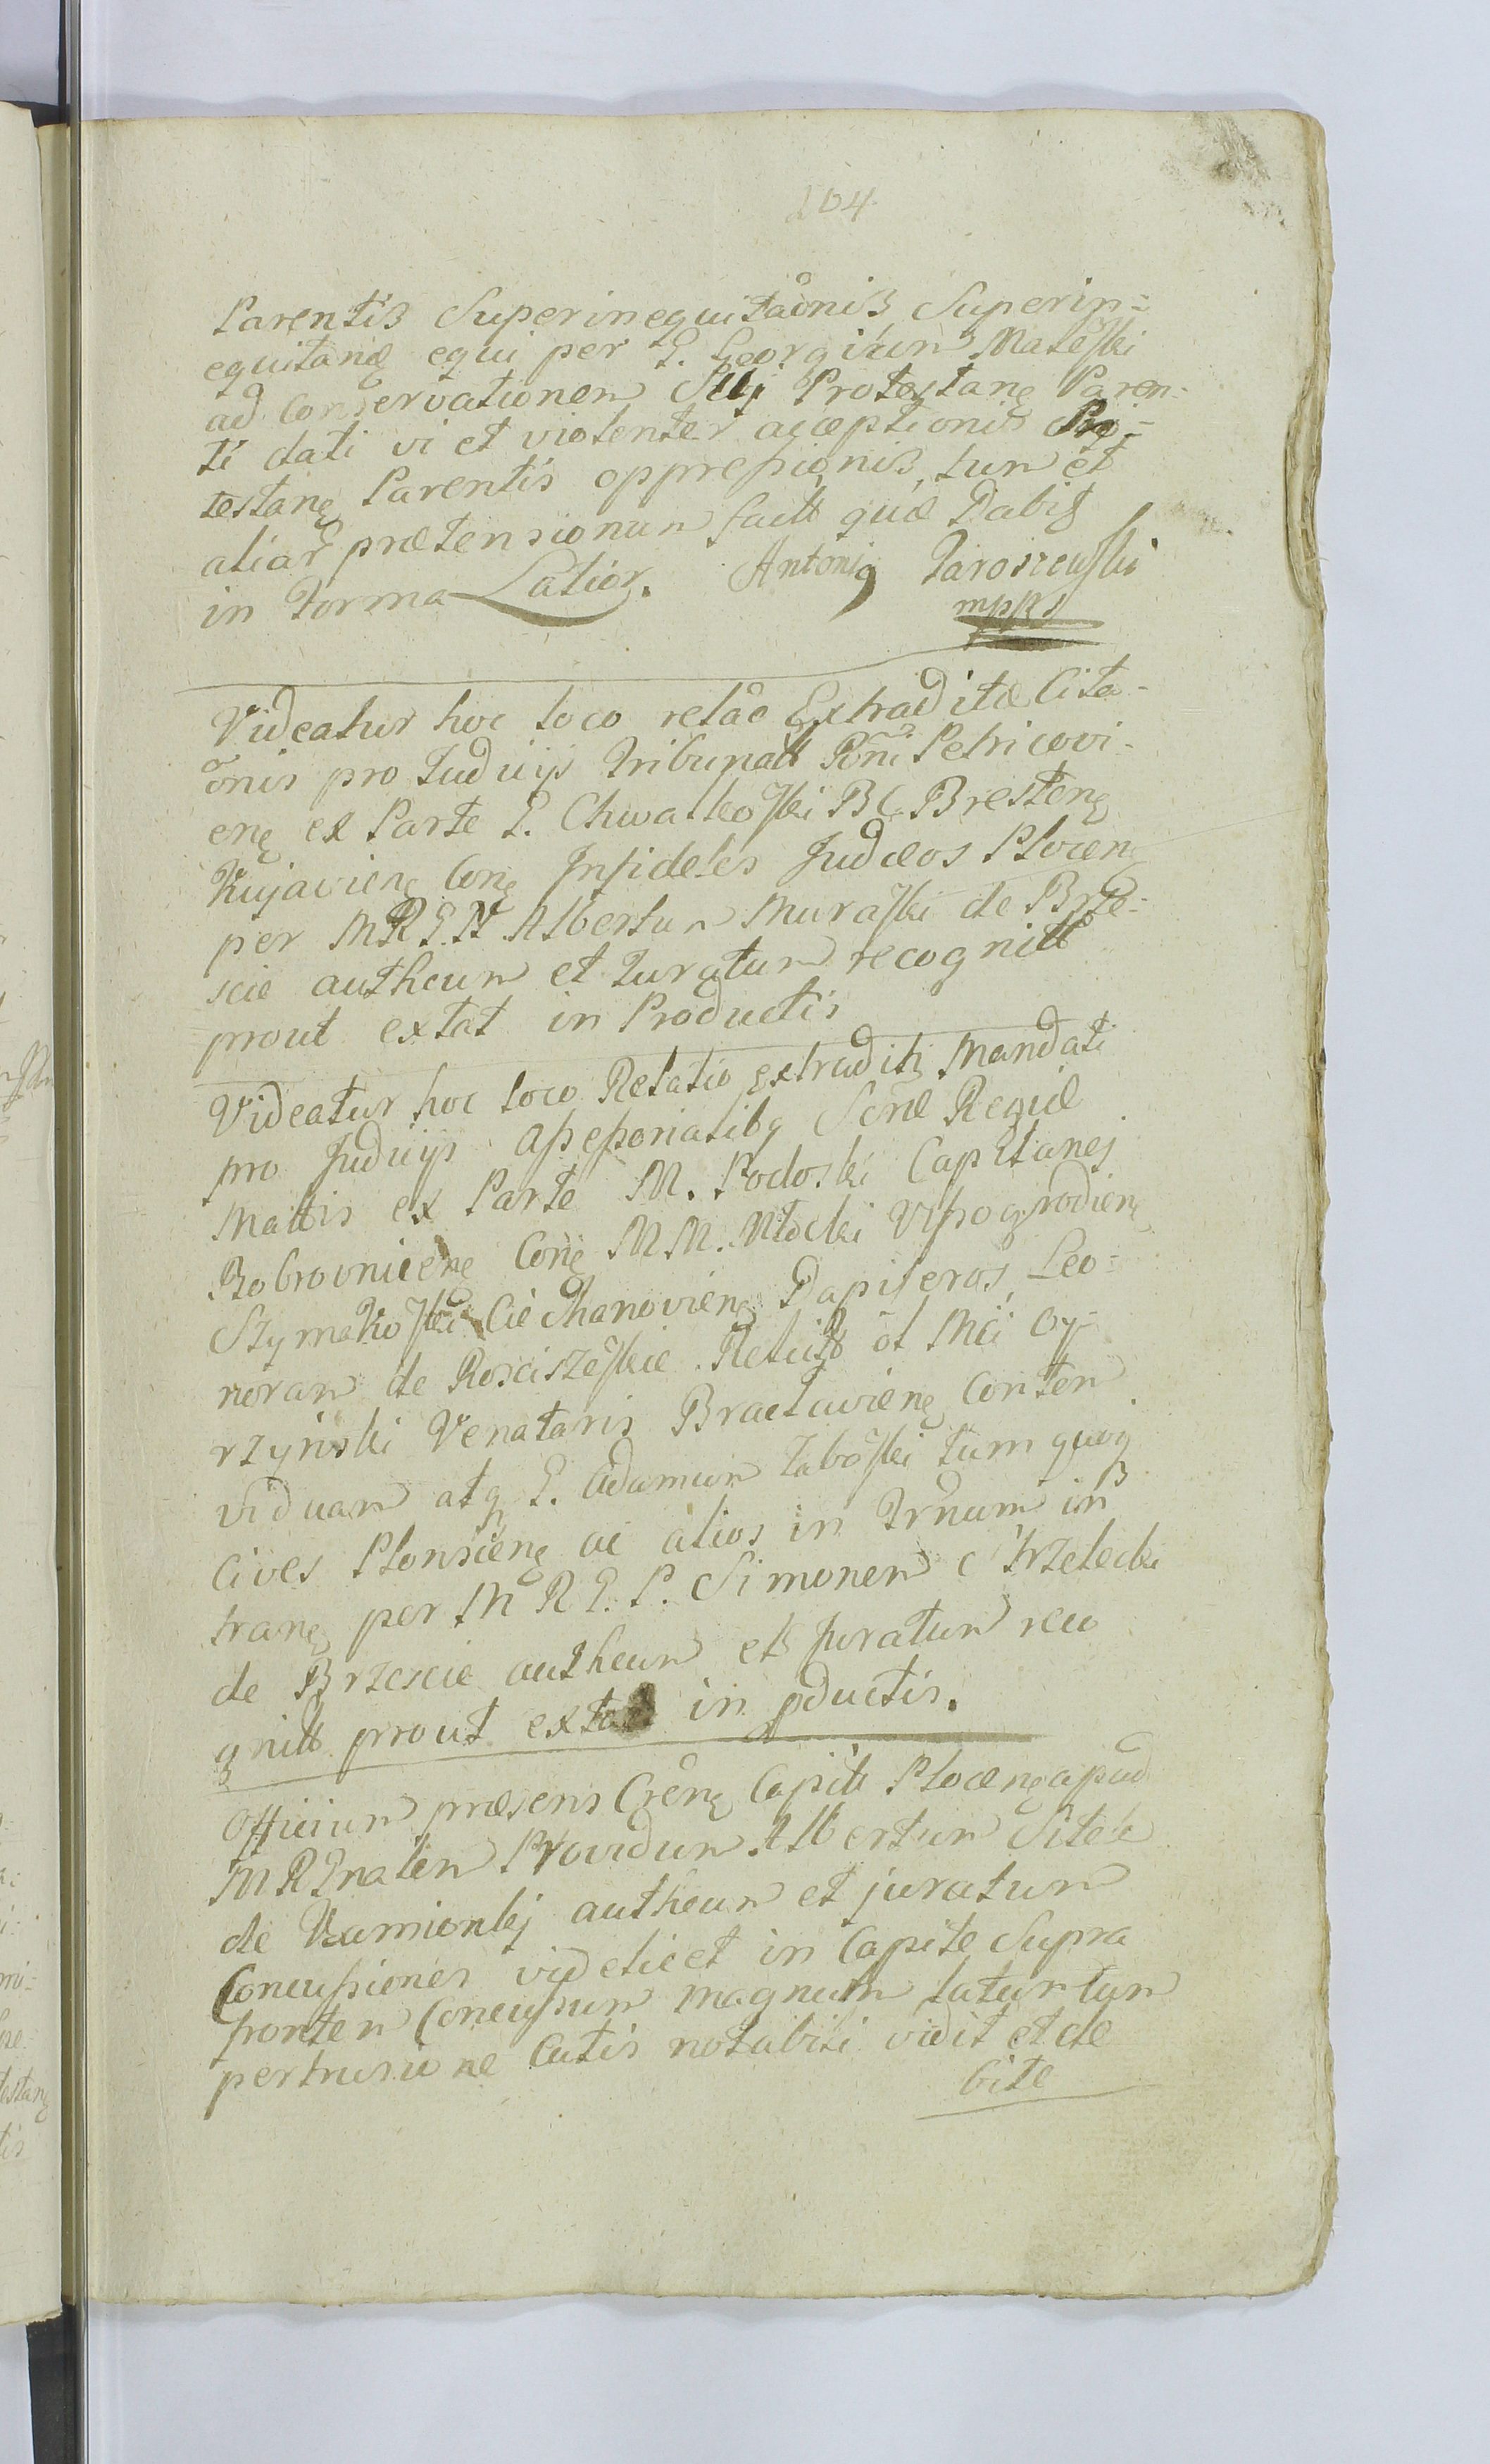 104
Parentis Superinequitaõnis Superin=
equitanę equi per G. Georgium Mateſki
ad Conservationem Protestanę Paren-
ti dati vi et violenter acceptionis Pro-
testanę Parentis oppreſsionis, tum et
aliar prætensionum factt quæ Dabit
in Forma Latior. Antoni9 Jaroszewſki
mpp
Videatur hoc loco relão Extraditæ Cita-
onis pro Judicijs Tribunatt Rñi Petricovi-
enę ex Parte G. Chwalkoſki B C Brestenę
Kujavienę Conę Infideles Judæos Plocenę
per MRGN Albertum Muraſki de Brze-
scie autheum et Juratum recognitt
prout extat in Productis
Videatur hoc loco Relatio extraditi Mandati
pro Judicijs Aſseſsoriatib9 Scræ Regiæ
Mattis ex Parte M. Podoski Capitanej
Bobrovnicenę Conę MM. Młocki Viſsogrodienę
Szymakoſki Ciechanovienę Dapiferos, Leo=
noram de Rosciszeſkie Relict ol Mci Oy-
rzyński Venataris Braclavienę Conten
viduam atq G. Adamum Zaboſki tum quoq
Cives Plonsienę ac alios in Trnum in
tranę per M R G. P. Simonem Strzelecki
de Brzescie autheum et Juratum reco
gnitt prout extat in pductis.
Officium præsens Crenę Capitt Plocenę apud
MRGnalem Providum Albertum
de Kamionki autheum et juratum
Concuſsiones videlicet in Capite Supra
frontem Concuſsum magnum latum cum
pertrusione Cutis notabili vidit et de
bite